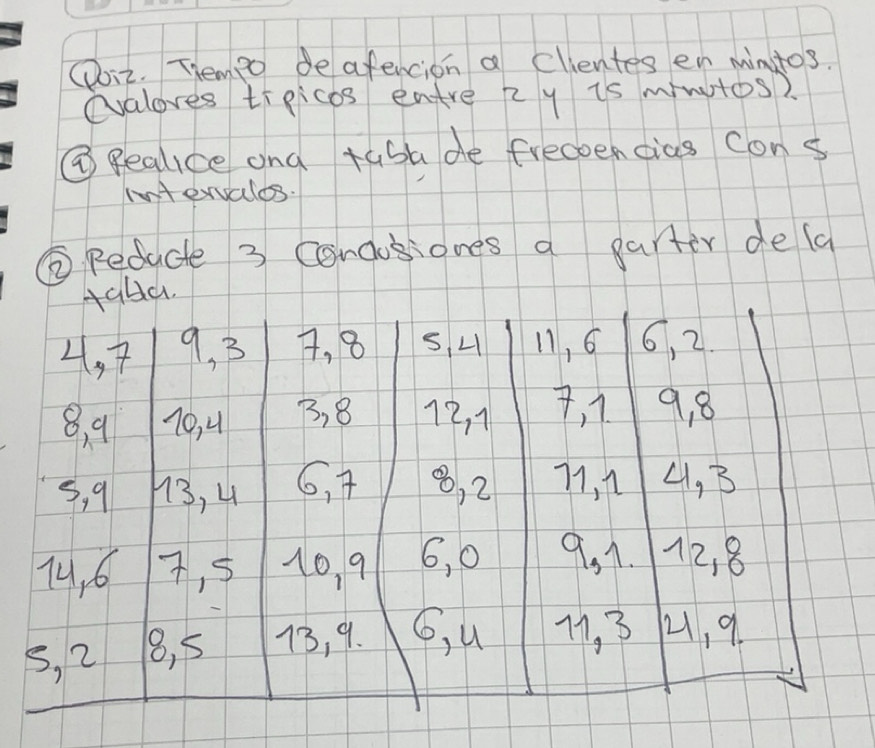 Quiz. Tiempo de atención a Clientes en minutos.
(valores típicos entre 2 y 15 minutos).
① Realice una tabla de frecuencias con 5
intervalos.
② Redacte 3 Conclusiones a partir de la
tabla.
4,7 | 9,3 | 7,8 | 5,4 | 11,6 | 6,2
8,9 | 10,4 | 3,8 | 12,1 | 7,1 | 9,8
5,9 | 13,4 | 6,7 | 8,2 | 11,1 | 4,3
14,6 | 7,5 | 10,9 | 6,0 | 9,1 | 12,8
5,2 | 8,5 | 13,9 | 6,4 | 11,3 | 4,9